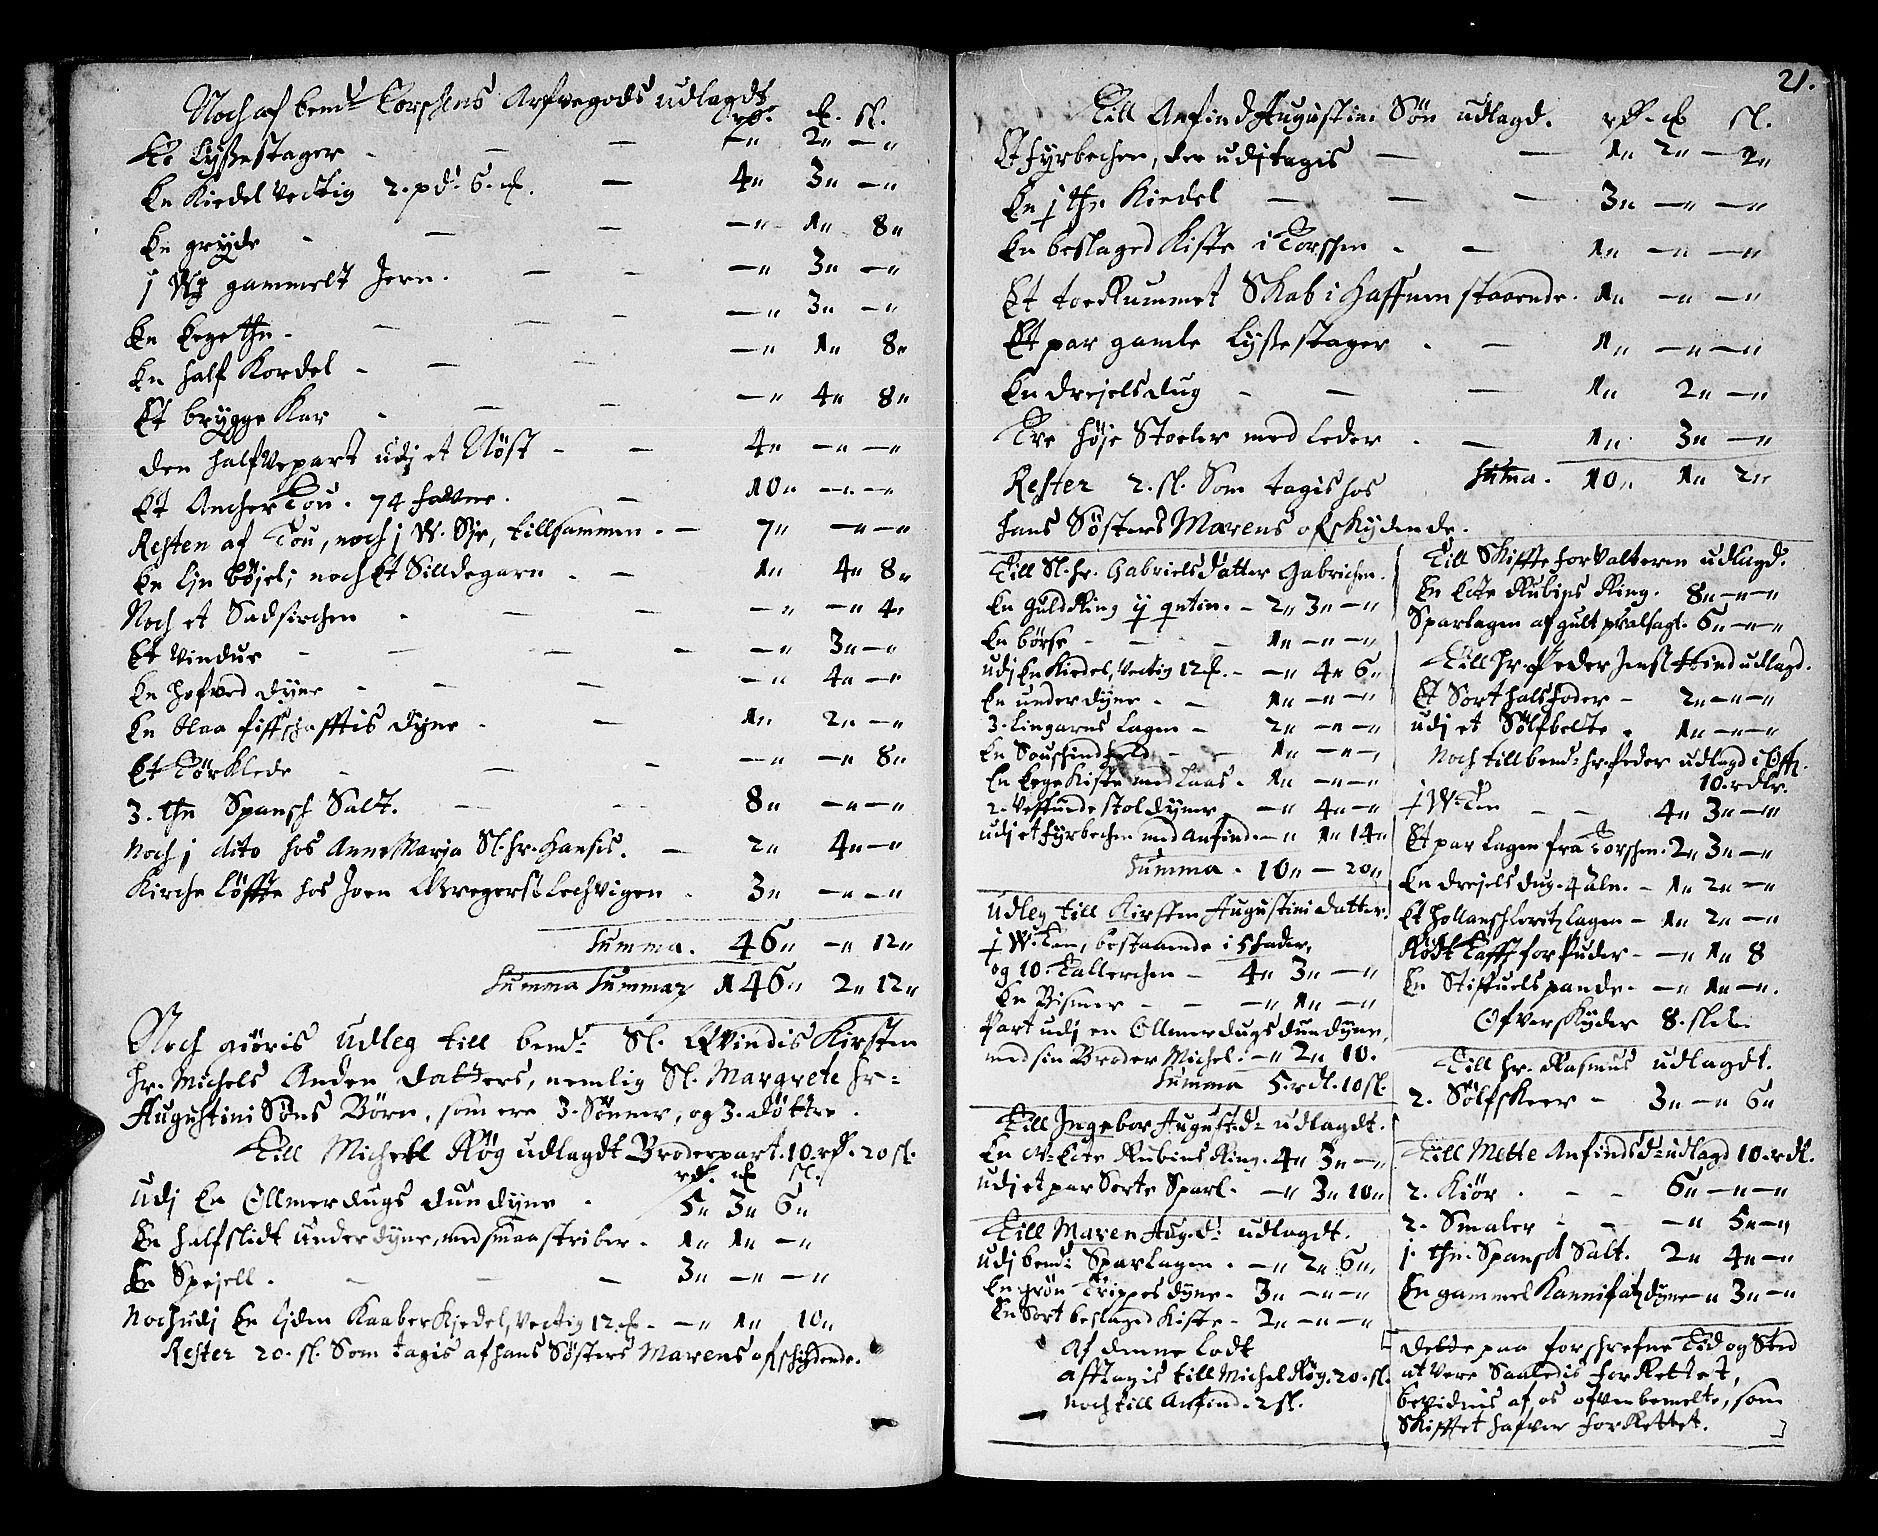 Noch af bemd.te Torschens Arfvegods udlagdt
rd. ℔. sl.
To Lyßestager - - - -" 2" -"
En Kiedel Vectig 2. pd. 6. ℔. - 4" 3" -"
En gryde - - - -" 1" 8"
j Wg gammelt Jern. - - -" 3" -"
En Lege thn. - - - -" 3" -"
En half Kordel - - -" 1" 8"
Et brygge Kar - - - -" 4" 8"
Den halfvepart udj et Nøst - - 4" -" -"
Et Ancher Tou. 74 halver. - 10" -" -"
Resten af Tou, noch j W. tillsammen. - 7" -" -"
En Lin bøjel; noch Et Silldegarn. - 1" 4" 8"
Noch et Sadsirchen - - -" -" 4"
Et Vindue - - - - -" 3" -"
En hofved dyne - - - -" 4" -"
En blaa dyne - - 1" 2" -"
Et Tørklede - - - -" -" 8"
3. thn Spansch Salt. - - 8" -" -"
Noch j dito hos Anne Marja Sl. hr. Hansis. - 2" 4" -"
Kirche Løffte hos Joen Gregers Lechvigen - 3" -" -"
Summa. 46" -" 12"
Summa Summar 146" 2" 12"
Noch giøris Udleg till bemd.te Sl. Qvindis Kirsten
Hr. Michels Anden Datters, nemlig Sl. Margrete Hr.
Augustini Søns Børn, som ere 3. Sønner, og 3. døttre.
Till Michell Røg udlagdt Broderpart. 10. rd. 20 sl.
rd. ℔ sl.
Udj En Ollmerdugs dundyne - 5" 3" 6"
En halfslidt underdyne, med smaa striber. 1" 1" -"
En Spejell. - - - 3" -" -"
Noch udj En liden Kaaber Kjedel, Vectig 12. ℔. -" 1" 10"
Rester 20. sl. Som tagis af hans Søsters Marens ofschydende.
21.
Till Anfind Augustini Søn udlagd. rd. ℔ sl.
Et fyrbechen, der udj tagis - - 1" 2" 2"
En j thn Kiedel - - - 3" -" -"
En beslaged Kiste i Torschen - - 1" -" -"
Et toe Rummet Skab i Haffnen staaende. 1" -" -"
Et par gamle Lyßestager - - 1" -" -"
En drejels dug - - - 1" 2" -"
Tre høje Stoeler med Leder - - 1" 3" -"
Rester 2. sl. Som tagis hos Suma. 10" 1" 2"
hans Søsters Marens ofskydende.
Till Sl. hr. Gabriels datter Gabrichen.
En Guld Ring ij qntin. - 2" 3" -"
En børse - - - 1" -" -"
udj En Kiedel, Vectig 12 ℔. - -" 4" 6"
En under dyne - - 1" -" -"
3. Lingarns Lagen - 2" -" -"
En - - 1" -" -"
En Lege Kiste med Laas. 1" -" -"
2. stoldyner -" 4" -"
udj et fyrbechen med Anfind. -" 1" 14"
Summa. 10" - 20"
Udleg till Kirsten Augustini datter.
j W. Ten, bestaaende i 5 fader,
og 10. Tallerchen - 4" 3" -"
En Bismer - - -" 1" -"
Part udj en Ollmerdugs dundyne,
med sin Broder Michel: -" 2" 10.
Summa 5. rdl. 10 sl.
Till Ingebor August. d. udlagdt.
En Ecte Rubins Ring. 4" 3" -"
Udj et par Sorte Sparl. -" 3" 10"
Till Maren Aug. d. udlagdt.
udj bemd. Sparlagen. -" 2" 6"
En grøn Trippes dyne. 3" -" -"
En Sort beslaged Kiste - 2" -" -"
Af denne Lodt
afftagis till Michel Røg. 20. sl.
Noch till Anfind. 2 sl.
Till Skiffteforvalteren udlagd.
En Ecte Rubins Ring. 8" -" -"
Sparlagen af gult 6" -" -"
Till Hr. Peder Jenss. Hind udlagd.
Et Sort halsfoder - 2" -" -"
udj et Sølfbelte. 1" -" -"
Noch till bemd. hr. Peder udlagd i
10. rdlr.
j W. Ten - - 4" 3" -"
Et par Lagen fra Torschen. 2" 3" -"
En drejels dug. 4 aln. - 1" 2" -"
Et Hollansch Lerritz Lagen - 1" 2" -"
Rødt Tafft for Puder - -" 1" 8
En Stiffuels pande. -" 1" -".
Ofverskyder 8. sk.
Till hr. Rasmus udlagdt.
2. Sølfskeer - 3" -" 6"
Till Mette Anfinds d. udlagd 10. rdl.
2. Kiør. - - 6" -" -"
2. Smaler - - -" 5" -"
j. thn. Spansch Salt. 2" 4" -"
En gammel dyne -" 3" -"
Dette paa forschrefne Tid og Sted
at Vere Saaledis forRettet,
bevidnis af os ofvenbemelte, som
Skifftet hafver forRettet.